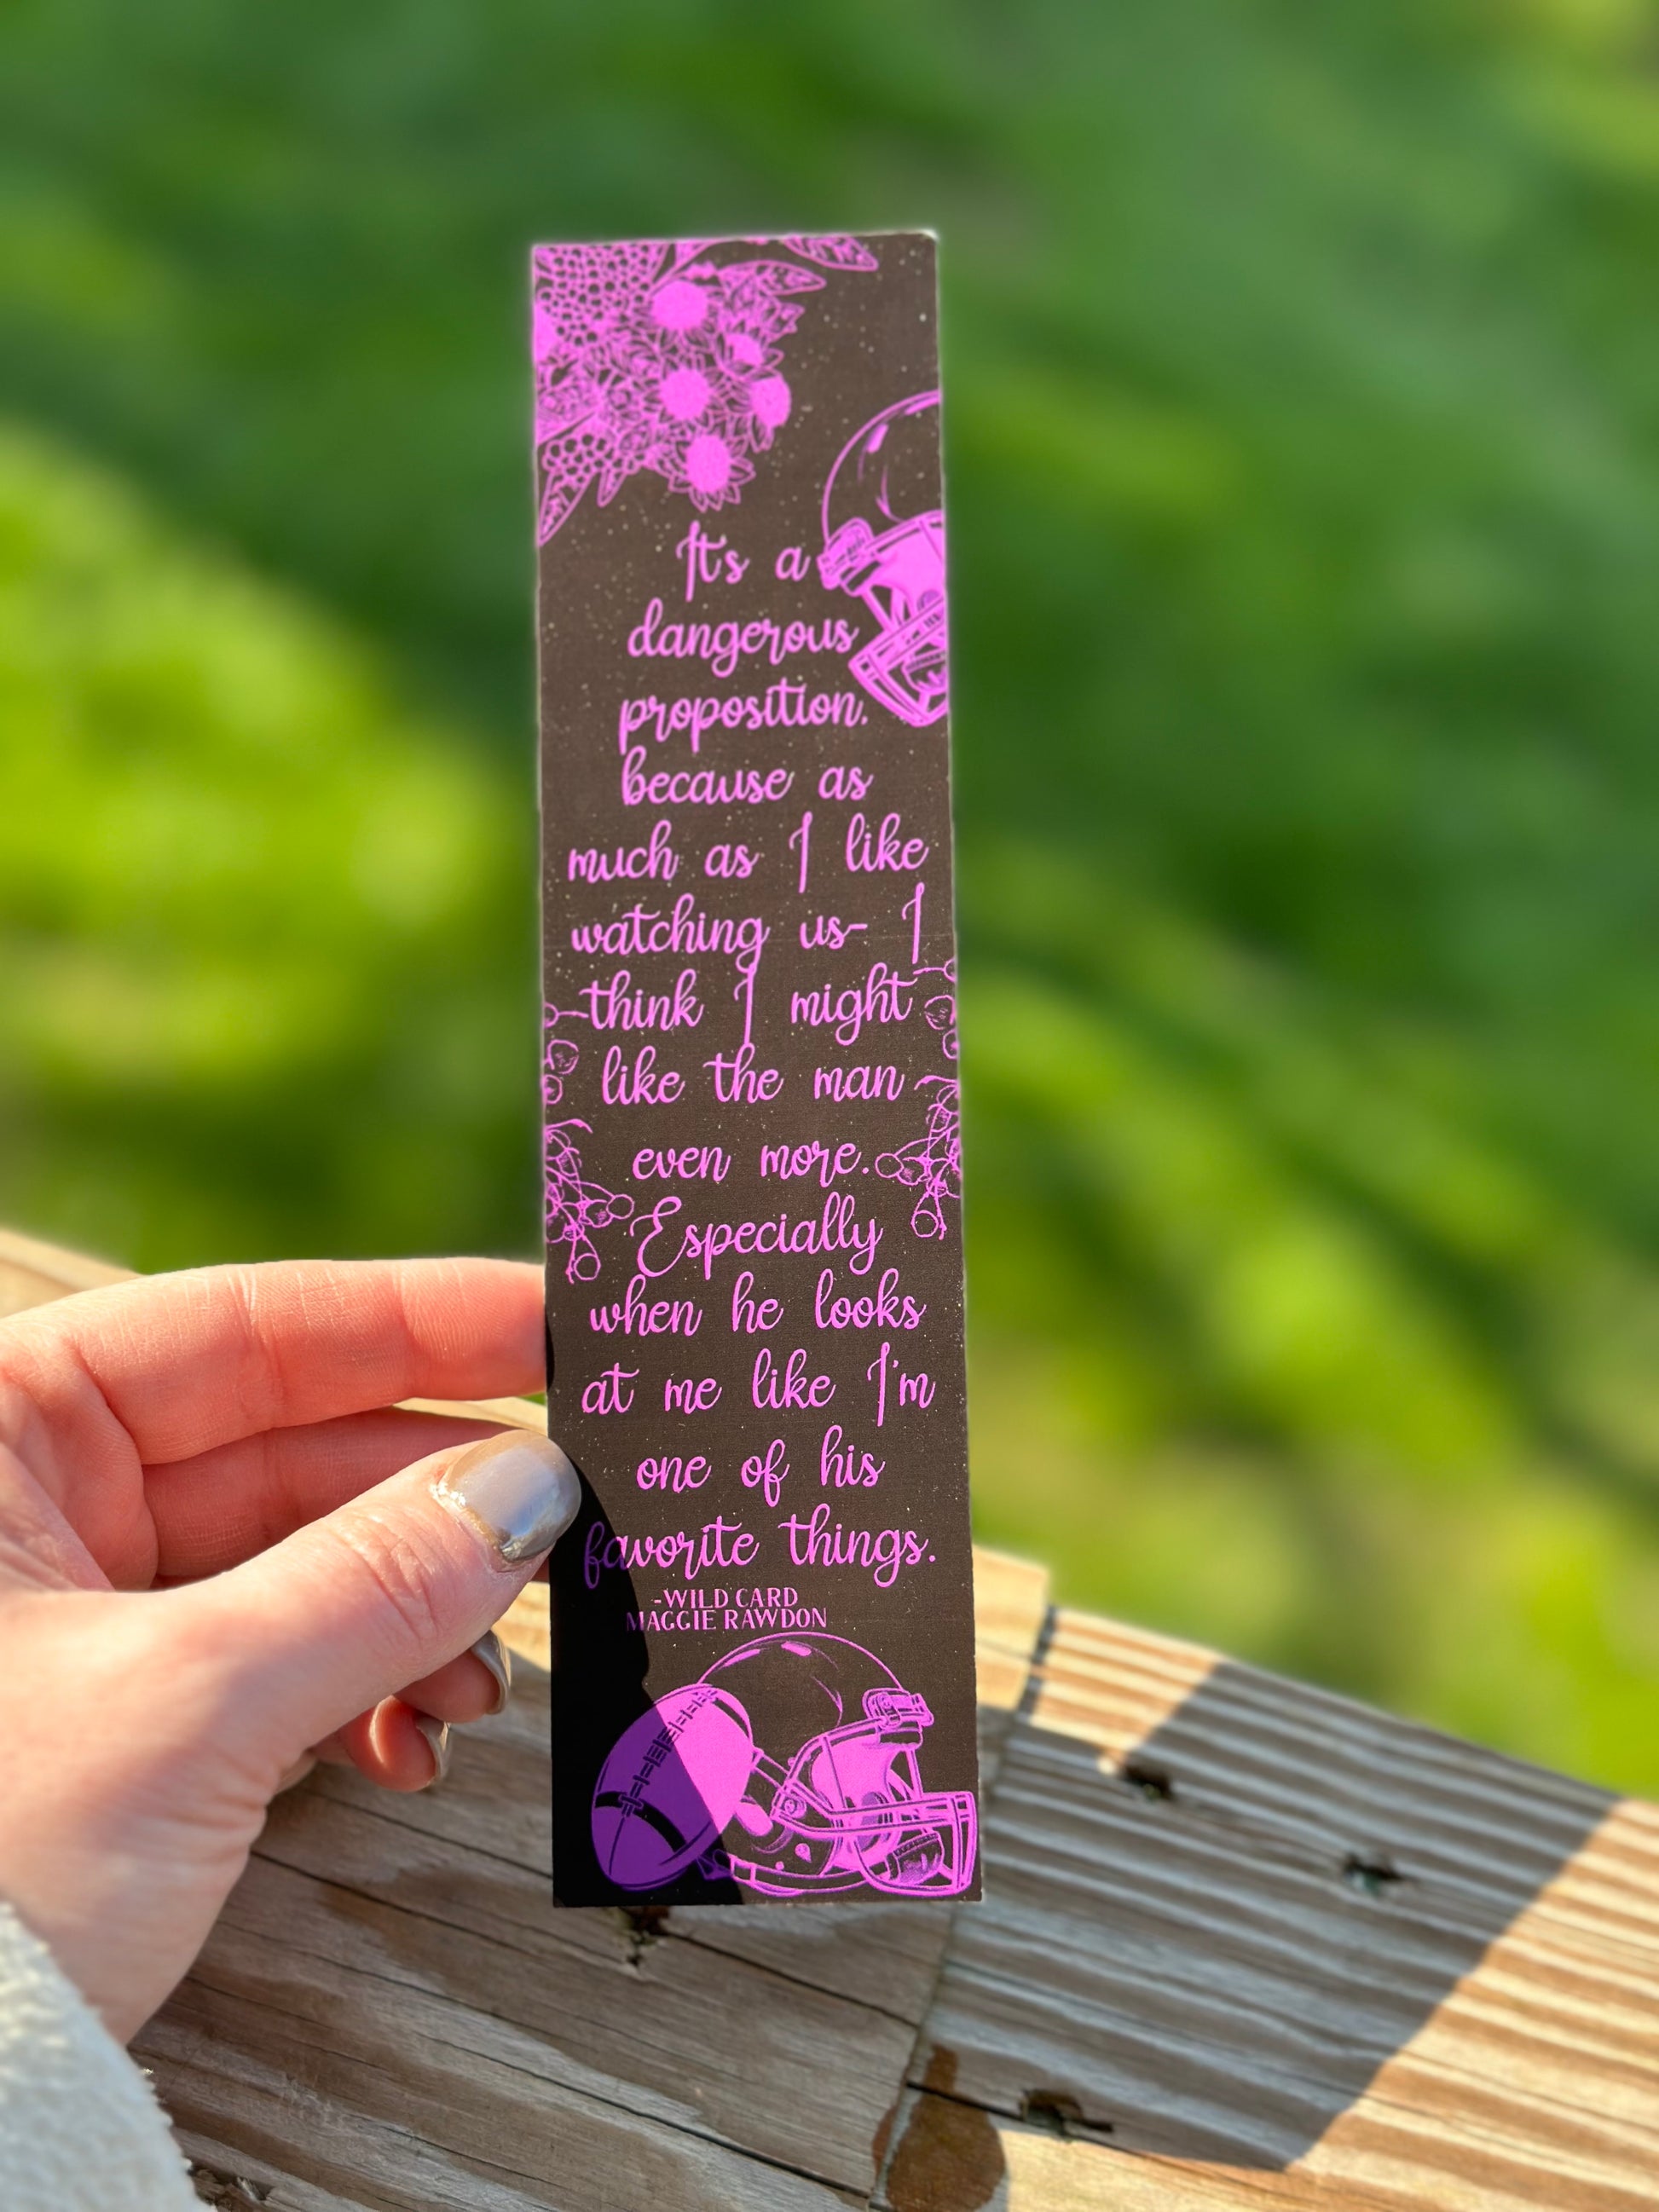 It's a
dangerous
proposition.
because as
much as I like
watching us- I
think I might
like the man
even more.
Especially
when he looks
at me like I'm
one of his
favorite things.
-WILD CARD
MAGGIE RAWDON